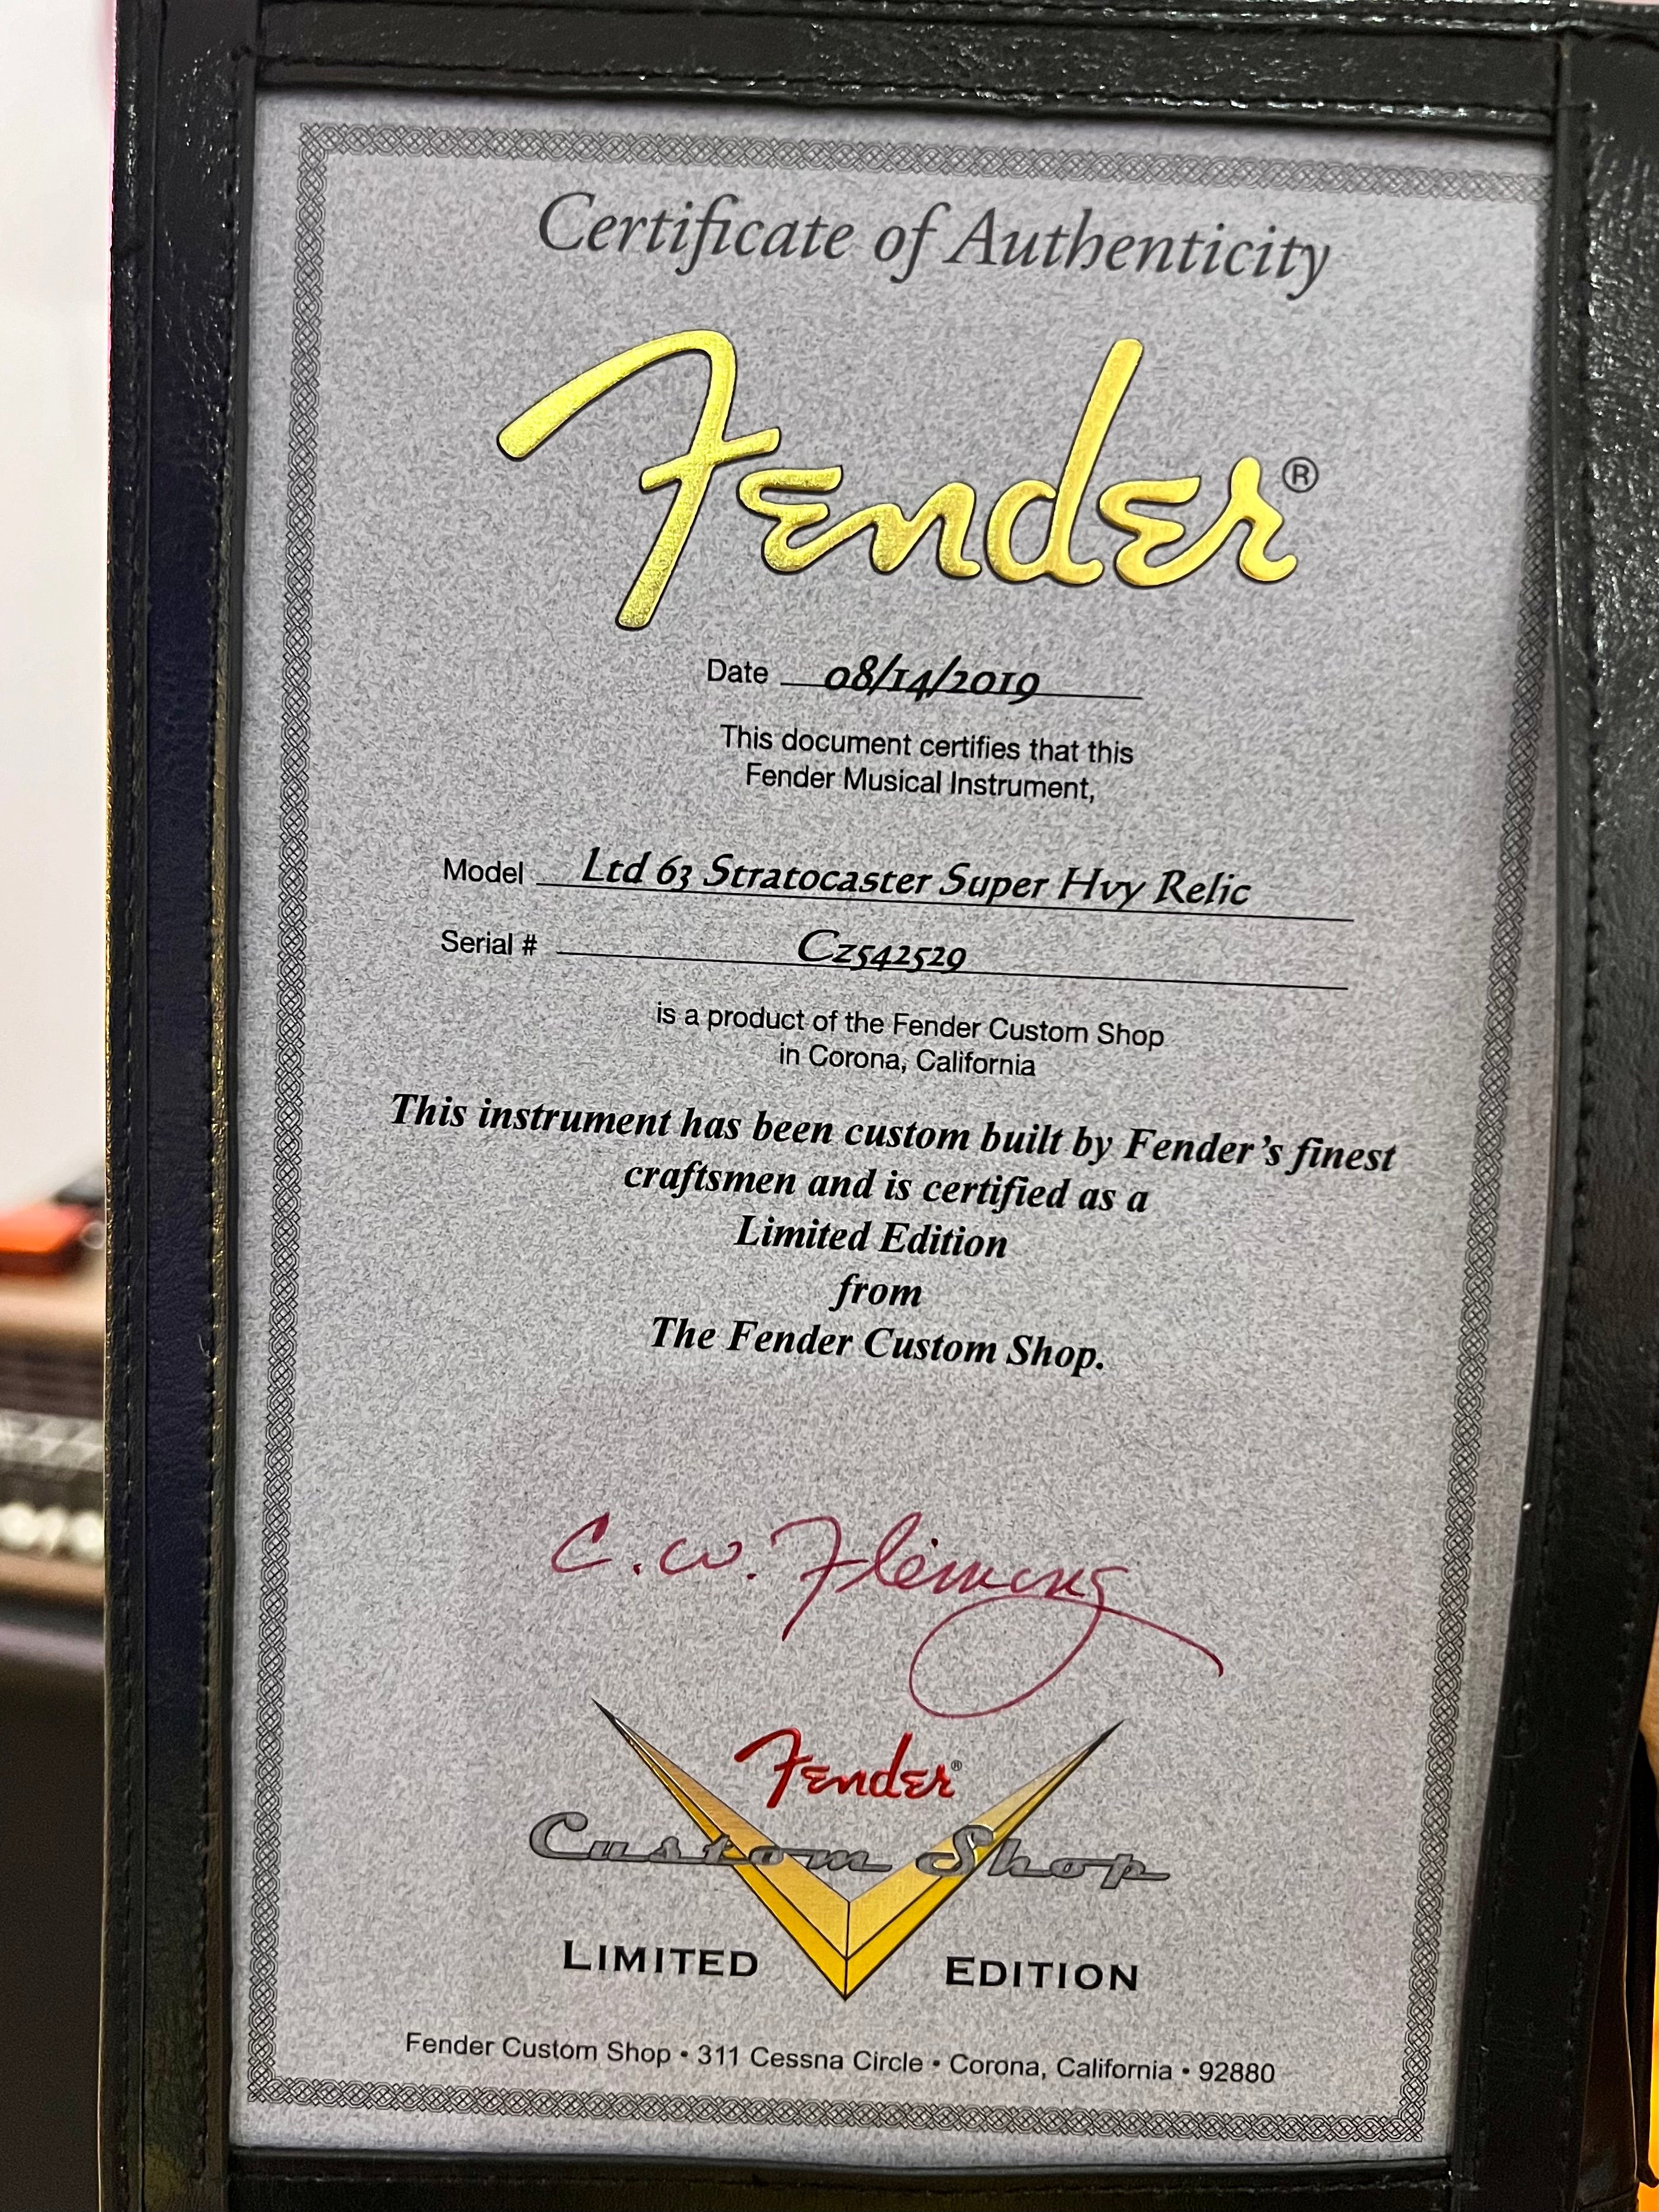 Certificate of Authenticity
Fender®
Date 08/14/2019
This document certifies that this
Fender Musical Instrument,
Model Ltd 63 Stratocaster Super Hvy Relic
Serial # Cz542529
is a product of the Fender Custom Shop
in Corona, California
This instrument has been custom built by Fender's finest
craftsmen and is certified as a
Limited Edition
from
The Fender Custom Shop.
C.W. Fleming
Fender®
Custom Shop
LIMITED EDITION
Fender Custom Shop • 311 Cessna Circle • Corona, California • 92880